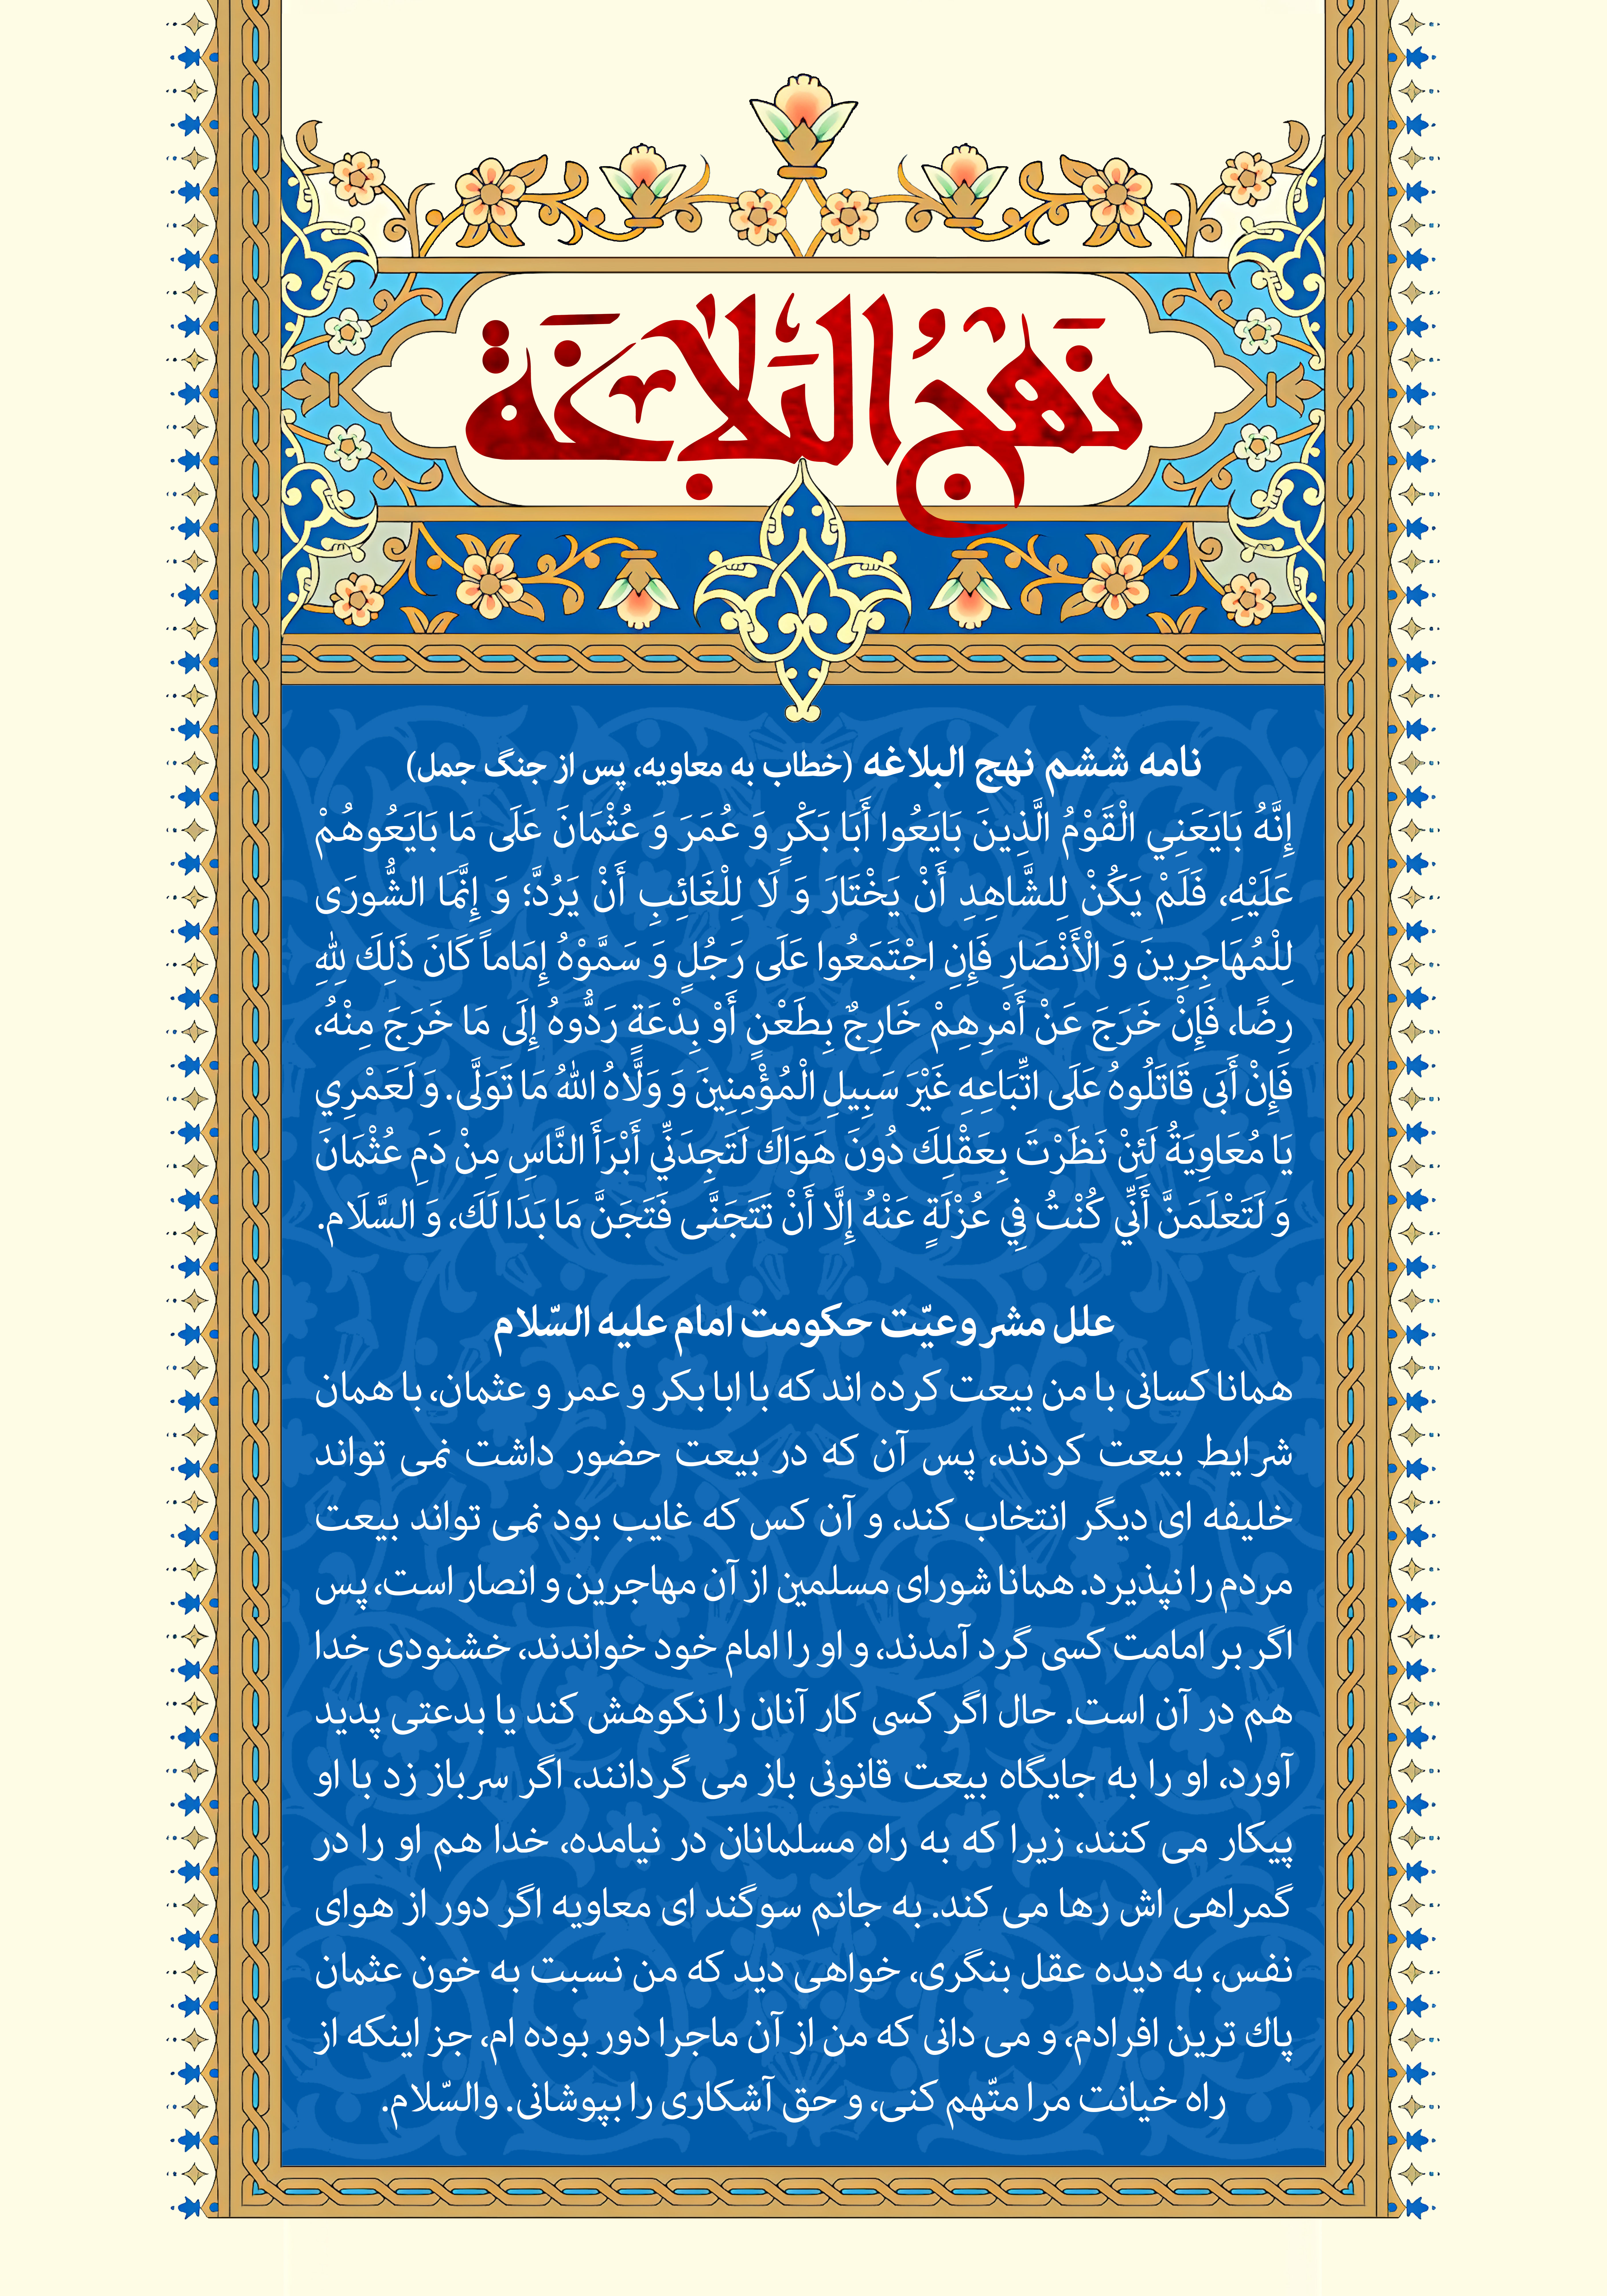 نَهْجُ الْبَلاغَة
نامه ششم نهج البلاغه (خطاب به معاویه، پس از جنگ جمل)
إِنَّهُ بَايَعَنِي الْقَوْمُ الَّذِينَ بَايَعُوا أَبَا بَكْرٍ وَ عُمَرَ وَ عُثْمَانَ عَلَى مَا بَايَعُوهُمْ
عَلَيْهِ، فَلَمْ يَكُنْ لِلشَّاهِدِ أَنْ يَخْتَارَ وَ لَا لِلْغَائِبِ أَنْ يَرُدَّ؛ وَ إِنَّمَا الشُّورَى
لِلْمُهَاجِرِينَ وَ الْأَنْصَارِ فَإِنِ اجْتَمَعُوا عَلَى رَجُلٍ وَ سَمَّوْهُ إِمَاماً كَانَ ذَلِكَ لِلّهِ
رِضًا، فَإِنْ خَرَجَ عَنْ أَمْرِهِمْ خَارِجٌ بِطَعْنٍ أَوْ بِدْعَةٍ رَدُّوهُ إِلَى مَا خَرَجَ مِنْهُ،
فَإِنْ أَبَى قَاتَلُوهُ عَلَى اتِّبَاعِهِ غَيْرَ سَبِيلِ الْمُؤْمِنِينَ وَ وَلَّاهُ اللهُ مَا تَوَلَّى. وَ لَعَمْرِي
يَا مُعَاوِيَةُ لَئِنْ نَظَرْتَ بِعَقْلِكَ دُونَ هَوَاكَ لَتَجِدَنِّي أَبْرَأَ النَّاسِ مِنْ دَمِ عُثْمَانَ
وَ لَتَعْلَمَنَّ أَنِّي كُنْتُ فِي عُزْلَةٍ عَنْهُ إِلَّا أَنْ تَتَجَنَّى فَتَجَنَّ مَا بَدَا لَكَ، وَ السَّلَام.
علل مشروعیّت حکومت امام علیه السّلام
همانا کسانی با من بیعت کرده اند که با ابا بکر و عمر و عثمان، با همان
شرایط بیعت کردند، پس آن که در بیعت حضور داشت نمی تواند
خلیفه ای دیگر انتخاب کند، و آن کس که غایب بود نمی تواند بیعت
مردم را نپذیرد. همانا شورای مسلمین از آن مهاجرین و انصار است، پس
اگر بر امامت کسی گرد آمدند، و او را امام خود خواندند، خشنودی خدا
هم در آن است. حال اگر کسی کار آنان را نکوهش کند یا بدعتی پدید
آورد، او را به جایگاه بیعت قانونی باز می گردانند، اگر سرباز زد با او
پیکار می کنند، زیرا که به راه مسلمانان در نیامده، خدا هم او را در
گمراهی اش رها می کند. به جانم سوگند ای معاویه اگر دور از هوای
نفس، به دیده عقل بنگری، خواهی دید که من نسبت به خون عثمان
پاك ترین افرادم، و می دانی که من از آن ماجرا دور بوده ام، جز اینکه از
راه خیانت مرا متّهم کنی، و حق آشکاری را بپوشانی. والسّلام.